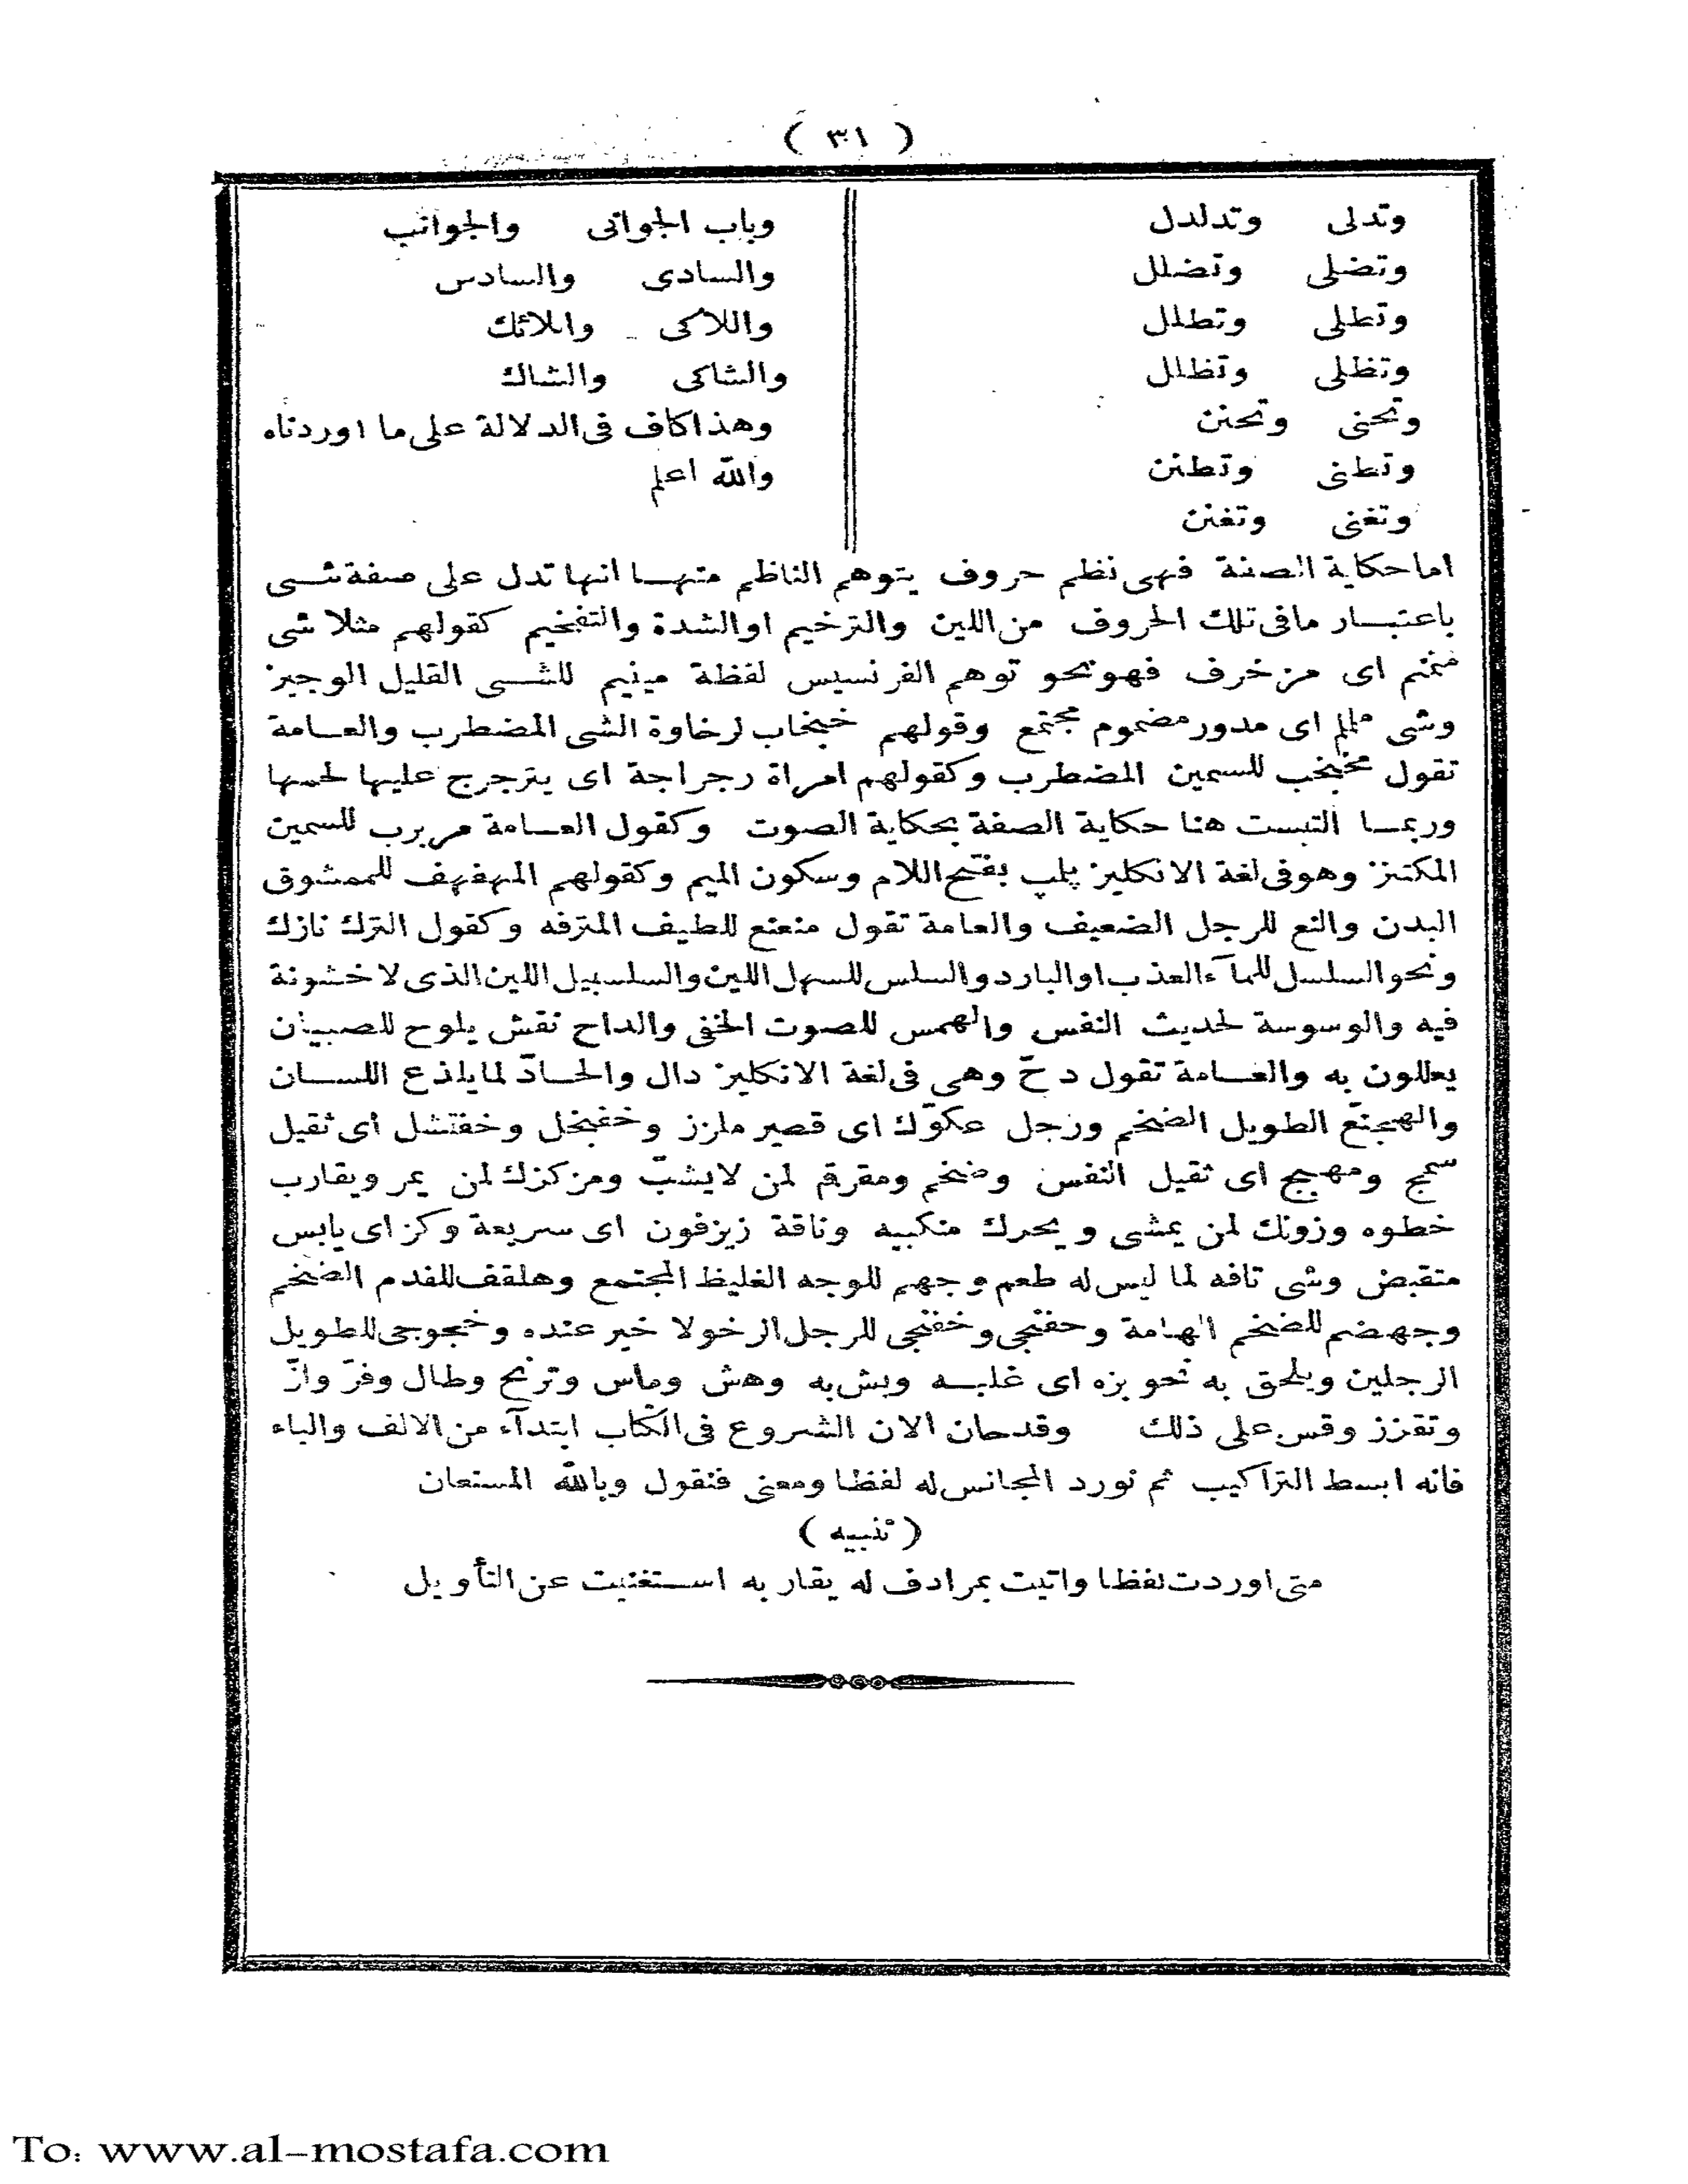 ( ٣١ )
وتدلى وتدلدل
وتضلى وتضلل
وتطلى وتطلل
وتظلى وتظلل
وتحنى وتحنن
وتطنى وتطنن
وتغنى وتغنن
وباب الجواتى والجوانب
والسادى والسادس
واللاكى والائك
والشاكى والشاك
وهذا كاف فى الدلالة على ما اوردناه
والله اعلم
اما حكاية الصفة فهى نظم حروف يتوهم الناظم منها انها تدل على صفة شى
باعتبار مافى تلك الحروف من اللين والترخيم او الشدة والتفخيم كقولهم مثلا شى
منمنم اى مزخرف فهو نحو توهم الفرنسيس لفظة مينيم للشى القليل الوجيز
وشى ململم اى مدور مضموم مجتمع وقولهم خبخاب لرخاوة الشى المضطرب والعامة
تقول مخبخب للسمين المضطرب وكقولهم امراة رجراجة اى يترجرج عليها لحمها
وربما التبست هنا حكاية الصفة بحكاية الصوت وكقول العامة مربرب للسمين
المكتنز وهو فى لغة الانكليز پلمپ بفتح اللام وسكون الميم وكقولهم المهفهف للممشوق
البدن والنع للرجل الضعيف والعامة تقول منعنع للطيف المترفه وكقول الترك نازك
ونحو السلسل للمآء العذب او البارد والسلس للسهل اللين والسلسبيل اللين الذى لا خشونة
فيه والوسوسة لحديث النفس والهمس للصوت الخفى والداح نقش يلوح للصبيان
يعللون به والعامة تقول دحّ وهى فى لغة الانكليز دال والحادّ لما يلذع اللسان
والهجنّع الطويل الضخم ورجل عكوّك اى قصير ملزز وخفنجل وخفنشل اى ثقيل
سمج ومهبج اى ثقيل النفس وضخم ومقرقم لمن لا يشبّ ومزكزك لمن يمر ويقارب
خطوه وزونك لمن يمشى ويحرك منكبيه وناقة زيزفون اى سريعة وكز اى يابس
متقبض وشى تافه لما ليس له طعم وجهم للوجه الغليظ المجتمع وهلقف للفدم الضخم
وجهضم للضخم الهامة وحفنجى وخفنجى للرجل الرخو لا خير عنده وخجوجى للطويل
الرجلين ويلحق به نحو بزه اى غلبه وبش به وهش وماس وترنح وطال وفرّ وازّ
وتقزز وقس على ذلك وقد حان الان الشروع فى الكتاب ابتدآء من الالف والباء
فانه ابسط التراكيب ثم نورد المجانس له لفظا ومعنى فنقول وبالله المستعان
( تنبيه )
متى اوردت لفظا واتيت بمرادف له يقاربه استغنيت عن التأويل
To: www.al-mostafa.com